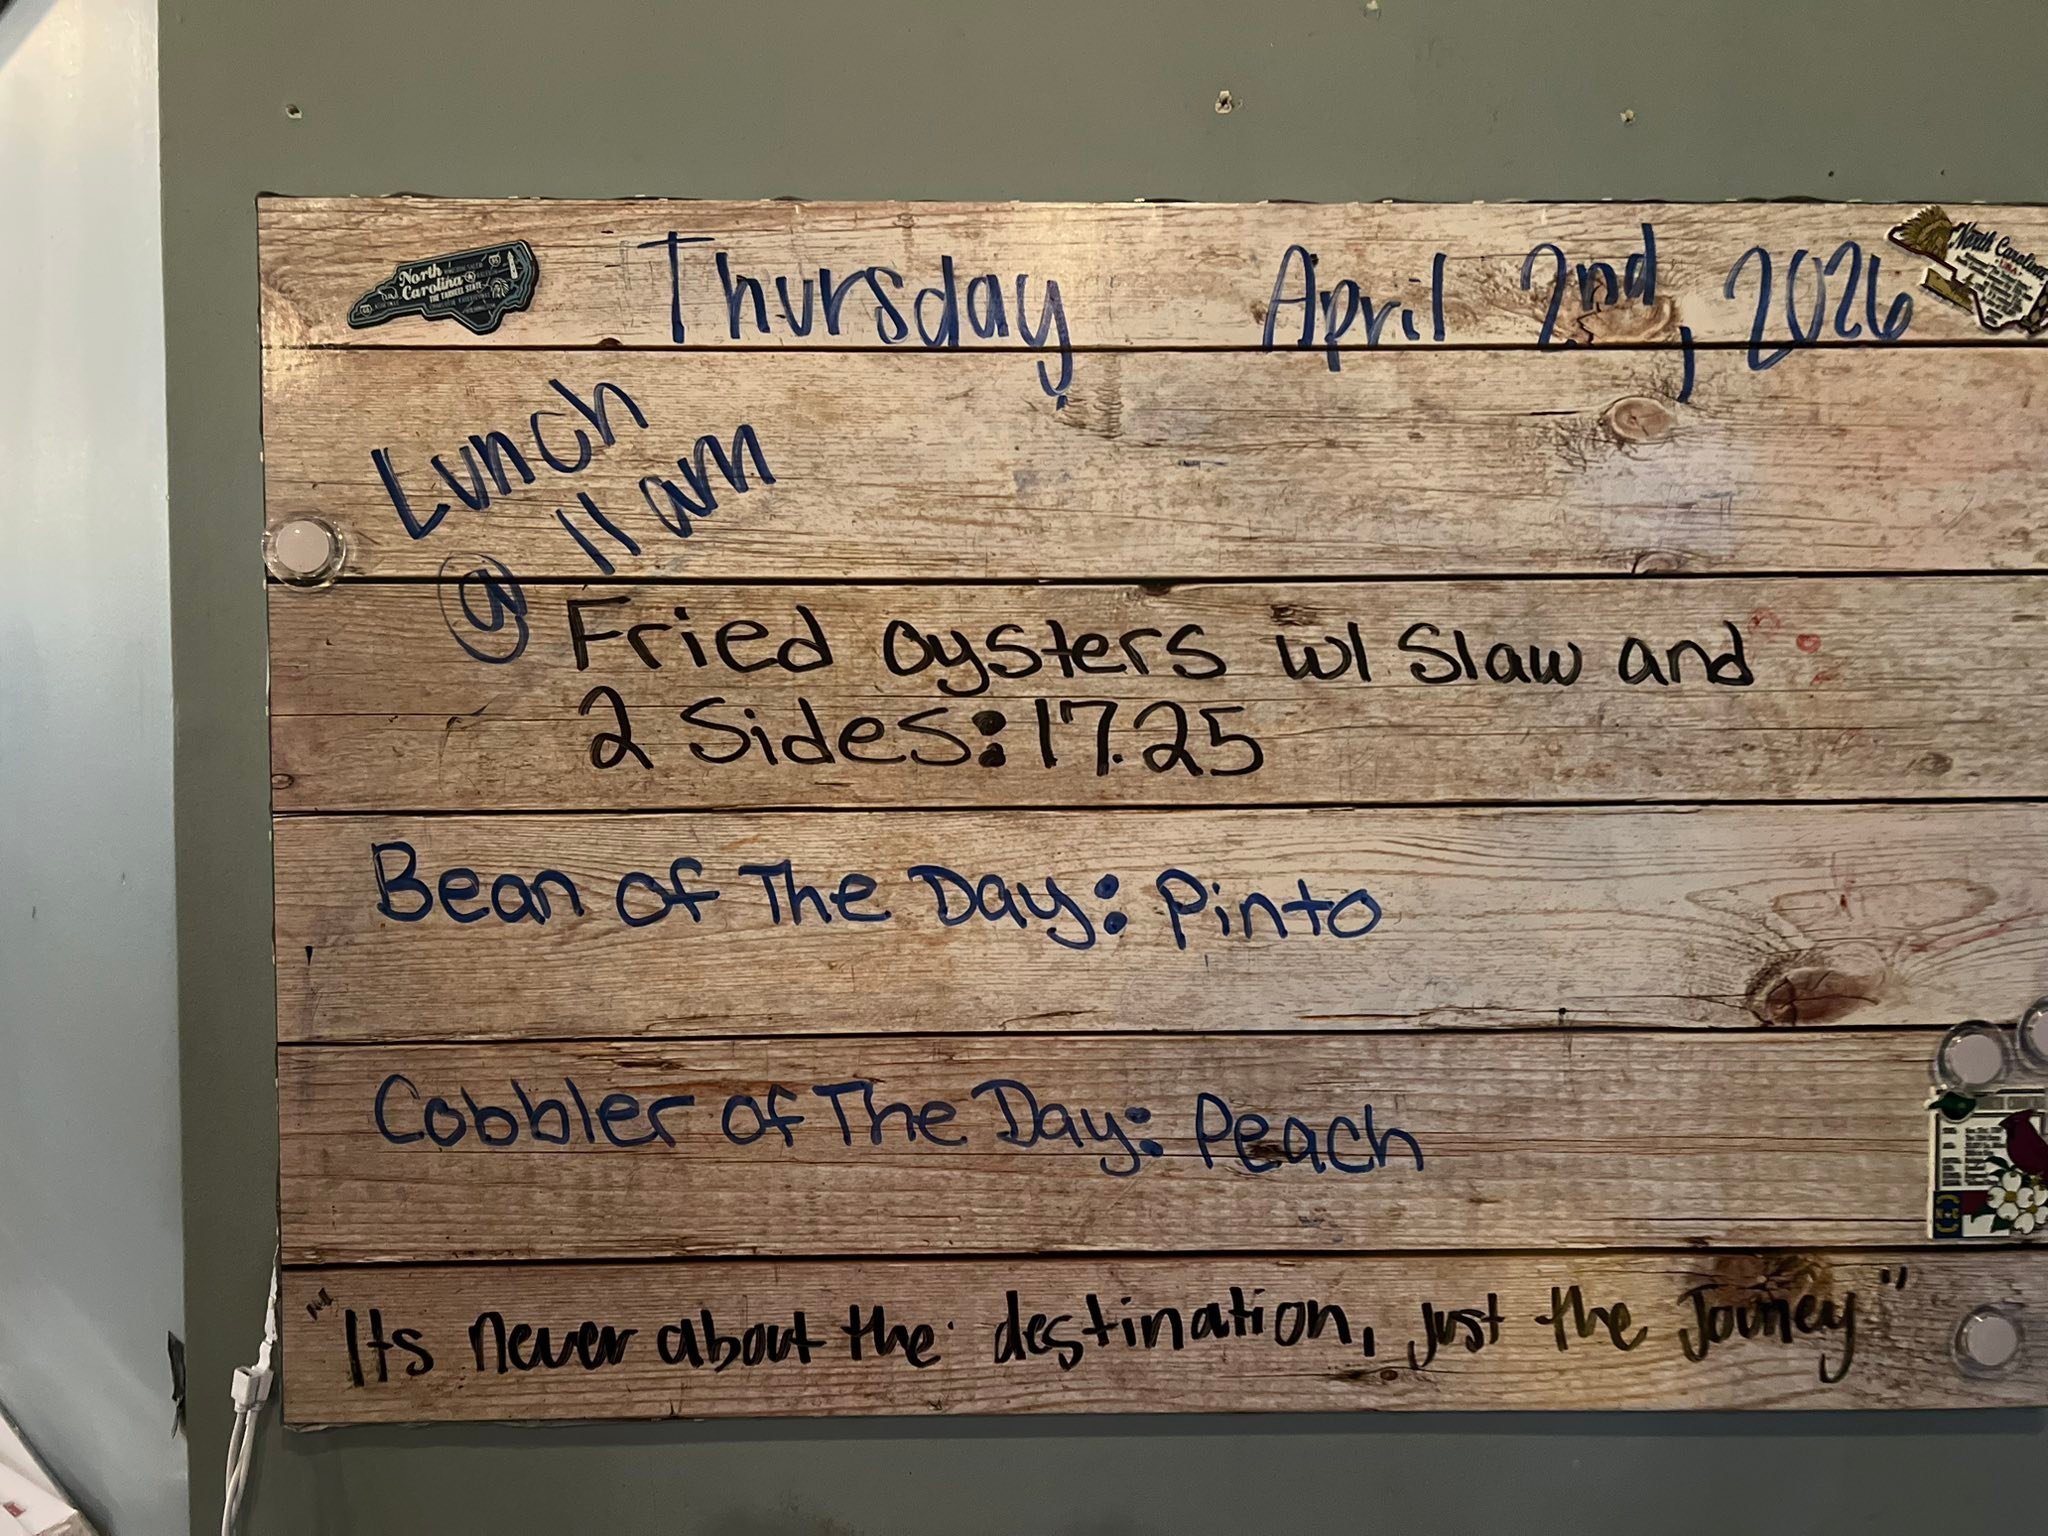 Thursday April 2nd, 2026
North Carolina
THE TARHEEL STATE
North Carolina
Lunch
@ 11am
Fried oysters w/ Slaw and
2 Sides: 17.25
Bean of The Day: Pinto
Cobbler of The Day: Peach
"Its never about the destination, just the Journey"